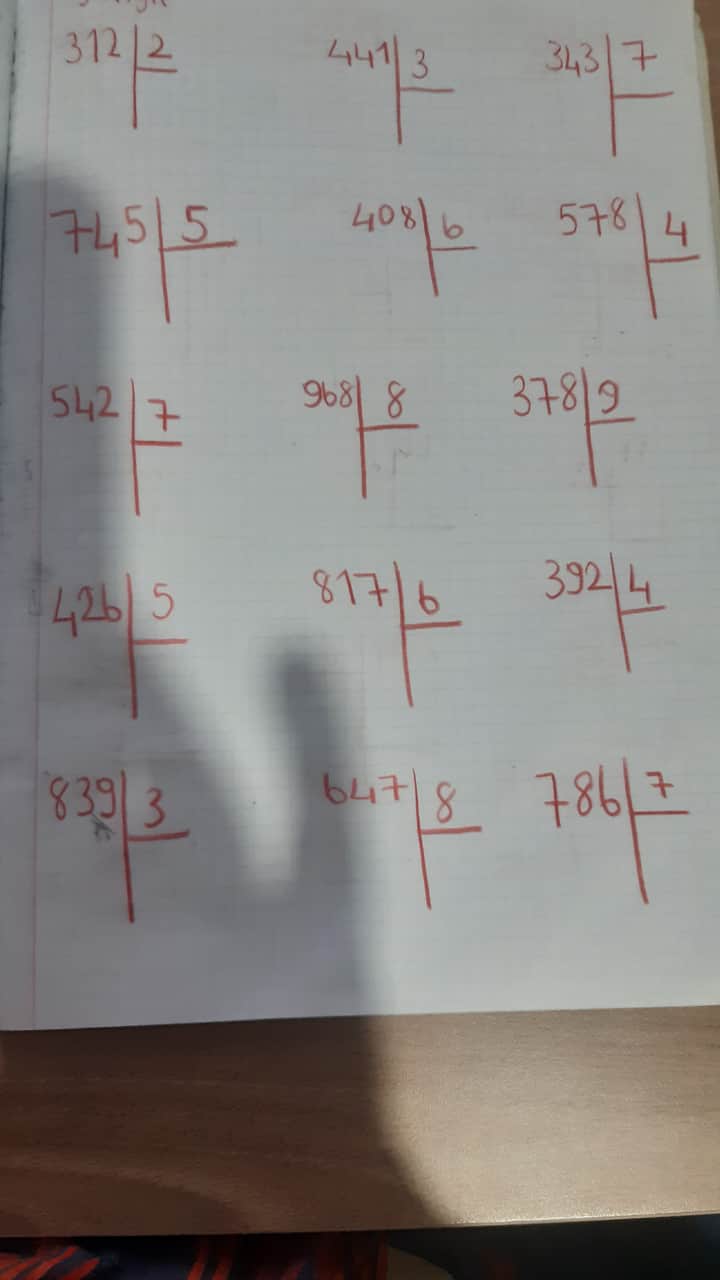 312 2 441 3 343 7
745 5 408 6 578 4
542 7 968 8 378 9
426 5 817 6 392 4
839 3 647 8 786 7